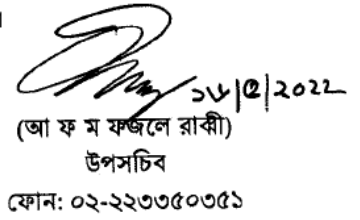 ১৮|৫|2022
(আ ফ ম ফজলে রাব্বী)
উপসচিব
ফোন: ০২-২২৩৩৫০৩৫১